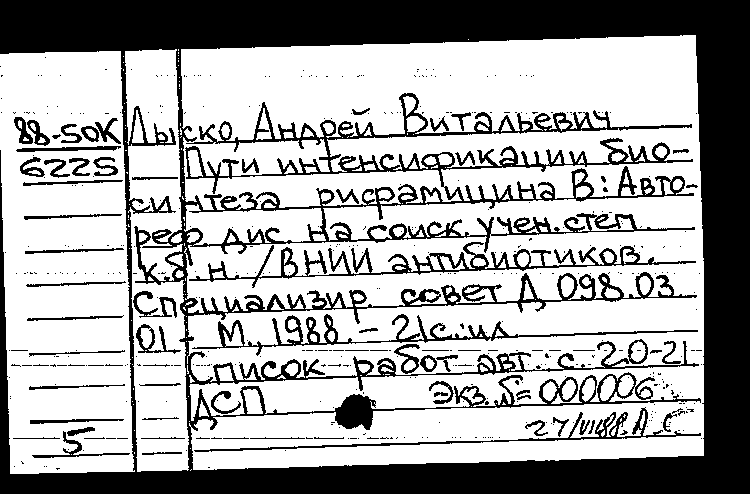 88-50К Лыско, Андрей Витальевич
6225 Пути интенсификации био-
синтеза рифамицина В: Авто-
реф дис. на соиск. учен. степ.
к.б.н. /ВНИИ антибиотиков.
Специализир. совет Д 098.03
01 - М., 1988. - 21с.: ил
Список работ авт.: с. 20-21
ДСП. Экз. №= 000006.
5 27/VII88. А.С.